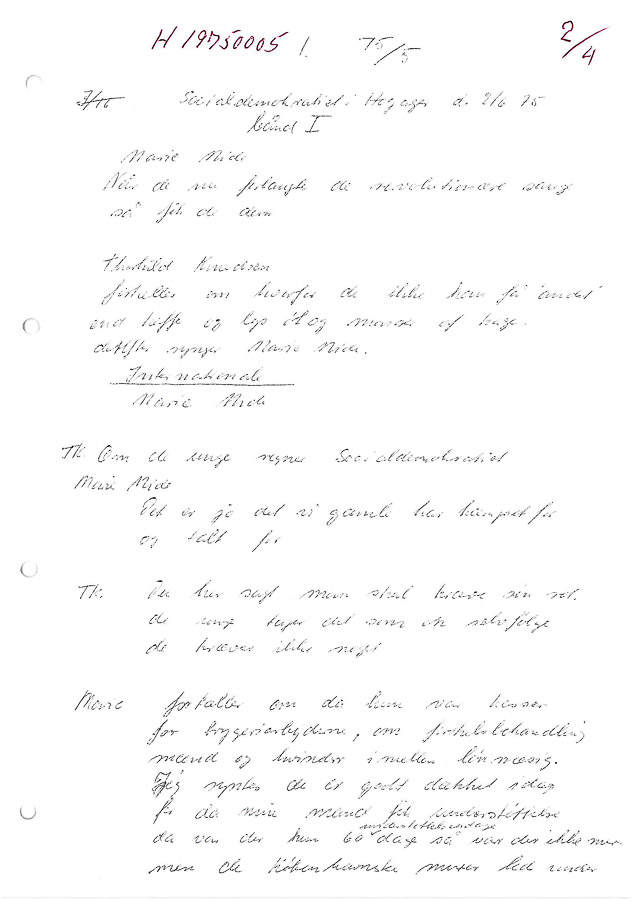 H 19750005 1. 75/5 2/4
Socialdemokratiet i Hogager d. 2/6 75
bånd I
Marie Nide
Når de nu forlangte de revolutionære sange
så fik de dem
Thorkild Knudsen
fortæller om hvorfor de ikke kan få andet
end kaffe og lys øl og masser af kage.
derefter synger Marie Nide.
Internationale
Marie Nide
TK. Om de unge regner Socialdemokratiet
Marie Nide
Det er jo det vi gamle har kæmpet for
og talt for
TK. Du har sagt man skal kræve sin ret.
de unge tager det som en selvfølge
de kræver ikke noget
Marie fortæller om da hun var kasser
for bryggeriarbejderne, om forskelsbehandling
mænd og kvinder imellem lønmæssig.
Jeg syntes de er godt dækket idag
for da min mand fik understøttelse
understøttelsesdage
da var der kun 60 dage så var der ikke mer
men de københavnske murer led under